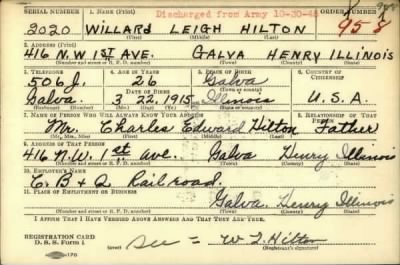 SERIAL NUMBER 1. NAME (Print) ORDER NUMBER
Discharged from Army 10-30-45
2020 WILLARD LEIGH HILTON 958
2. ADDRESS (Print)
416 N.W 1ST AVE. GALVA HENRY ILLINOIS
(Number and street or R. F. D. number) (Town) (County) (State)
3. TELEPHONE 4. AGE IN YEARS 5. PLACE OF BIRTH 6. COUNTRY OF CITIZENSHIP
506 J. 26 Galva
DATE OF BIRTH (Town or county)
Galva. 3 22, 1915 Illinois U.S.A.
(Exchange) (Number) (Mo.) (Day) (Yr.) (State or country)
7. NAME OF PERSON WHO WILL ALWAYS KNOW YOUR ADDRESS 8. RELATIONSHIP OF THAT PERSON
Mr. Charles Edward Hilton Father
(Mr., Mrs., Miss) (First) (Middle) (Last)
9. ADDRESS OF THAT PERSON
416 N.W. 1st Ave. Galva Henry Illinois
(Number and street or R. F. D. number) (Town) (County) (State)
10. EMPLOYER'S NAME
C. B & Q Railroad.
11. PLACE OF EMPLOYMENT OR BUSINESS
Galva. Henry Illinois
(Number and street or R. F. D. number) (Town) (County) (State)
I AFFIRM THAT I HAVE VERIFIED ABOVE ANSWERS AND THAT THEY ARE TRUE.
REGISTRATION CARD
D. S. S. Form 1 (over) W L Hilton
16-17 (Registrant's signature)